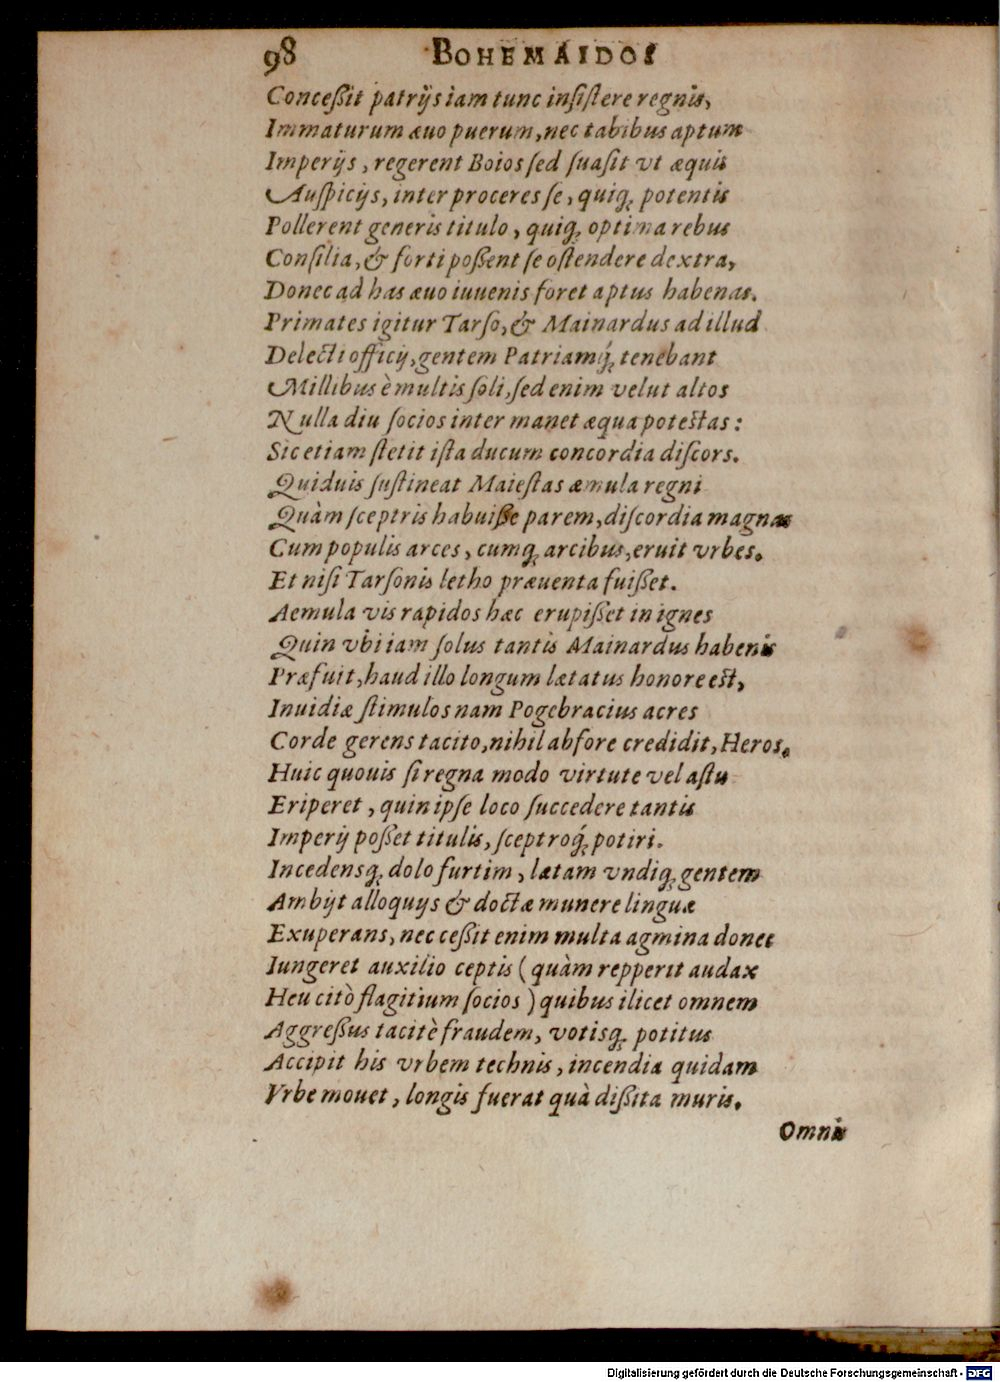 98 BOHEMAIDOS
Conceßit patrijs iam tunc insistere regnis,
Immaturum æuo puerum, nec tabibus aptum
Imperijs, regerent Boios sed suasit vt æquis
Auspicijs, inter proceres se, quiq́; potentis
Pollerent generis titulo, quiq́; optima rebus
Consilia, & forti poßent se ostendere dextra,
Donec ad has æuo iuuenis foret aptus habenas.
Primates igitur Tarso, & Mainardus ad illud
Delecti officij, gentem Patriamq́; tenebant
Millibus è multis soli, sed enim velut altos
Nulla diu socios inter manet æqua potestas:
Sic etiam stetit ista ducum concordia discors.
Quiduis sustineat Maiestas æmula regni
Quàm sceptris habuiße parem, discordia magnas
Cum populis arces, cumq́; arcibus, eruit vrbes.
Et nisi Tarsonis letho præuenta fuißet.
Aemula vis rapidos hæc erupißet in ignes
Quin vbi iam solus tantis Mainardus habenis
Præfuit, haud illo longum lætatus honore est,
Inuidiæ stimulos nam Pogebracius acres
Corde gerens tacito, nihil abfore credidit, Heros.
Huic quouis si regna modo virtute vel astu
Eriperet, quin ipse loco succedere tantis
Imperij poßet titulis, sceptroq́; potiri.
Incedensq́; dolo furtim, lætam vndiq́; gentem
Ambijt alloquijs & doctæ munere linguæ
Exuperans, nec ceßit enim multa agmina donec
Iungeret auxilio ceptis (quàm repperit audax
Heu citò flagitium socios) quibus ilicet omnem
Aggreßus tacitè fraudem, votisq́; potitus
Accipit his vrbem technis, incendia quidam
Vrbe mouet, longis fuerat quà dißita muris.
Omnis
Digitalisierung gefördert durch die Deutsche Forschungsgemeinschaft - DFG